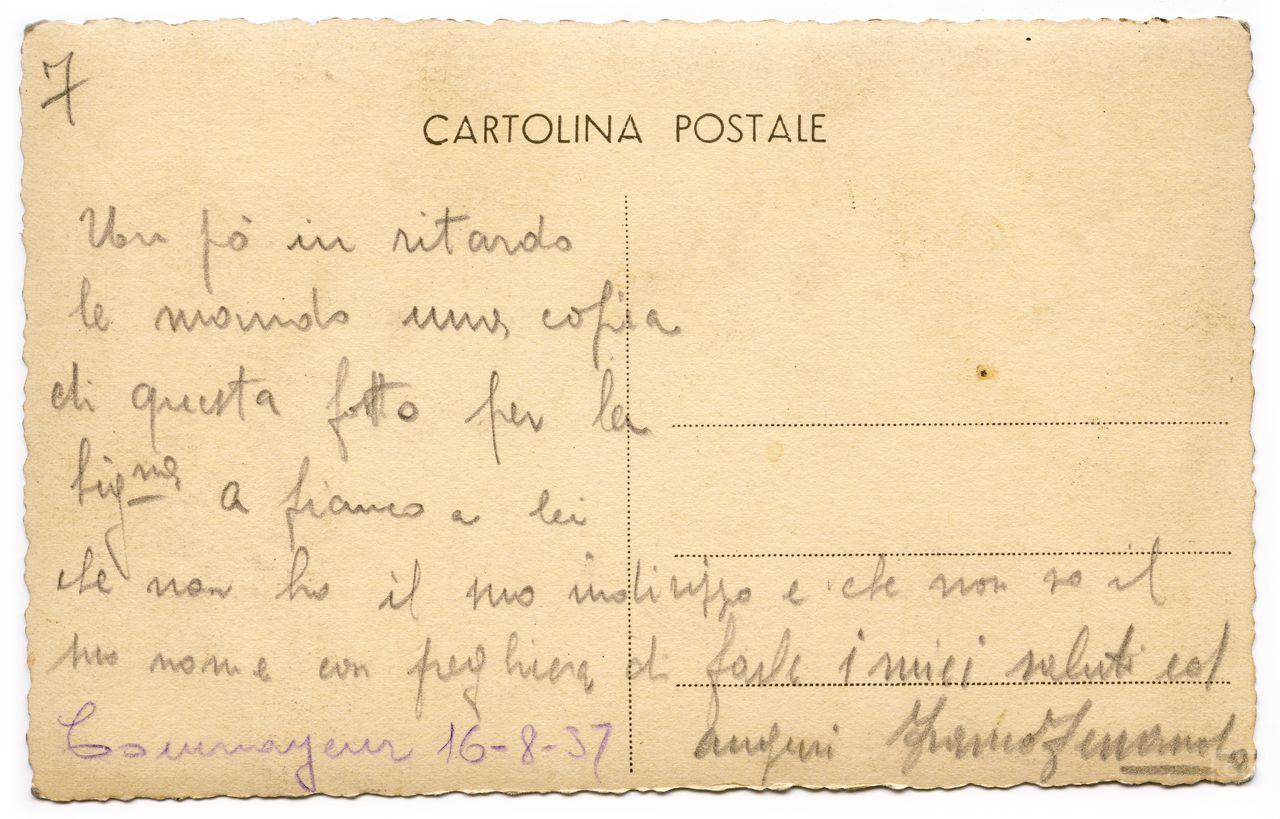 7
CARTOLINA POSTALE
Un pò in ritardo
le mando una copia
di questa fotto per la
Sig.na a fianco a lei
che non ho il suo indirizzo e che non so il
suo nome con preghiera di farle i miei saluti ed
auguri Franco
Courmayeur 16-8-37